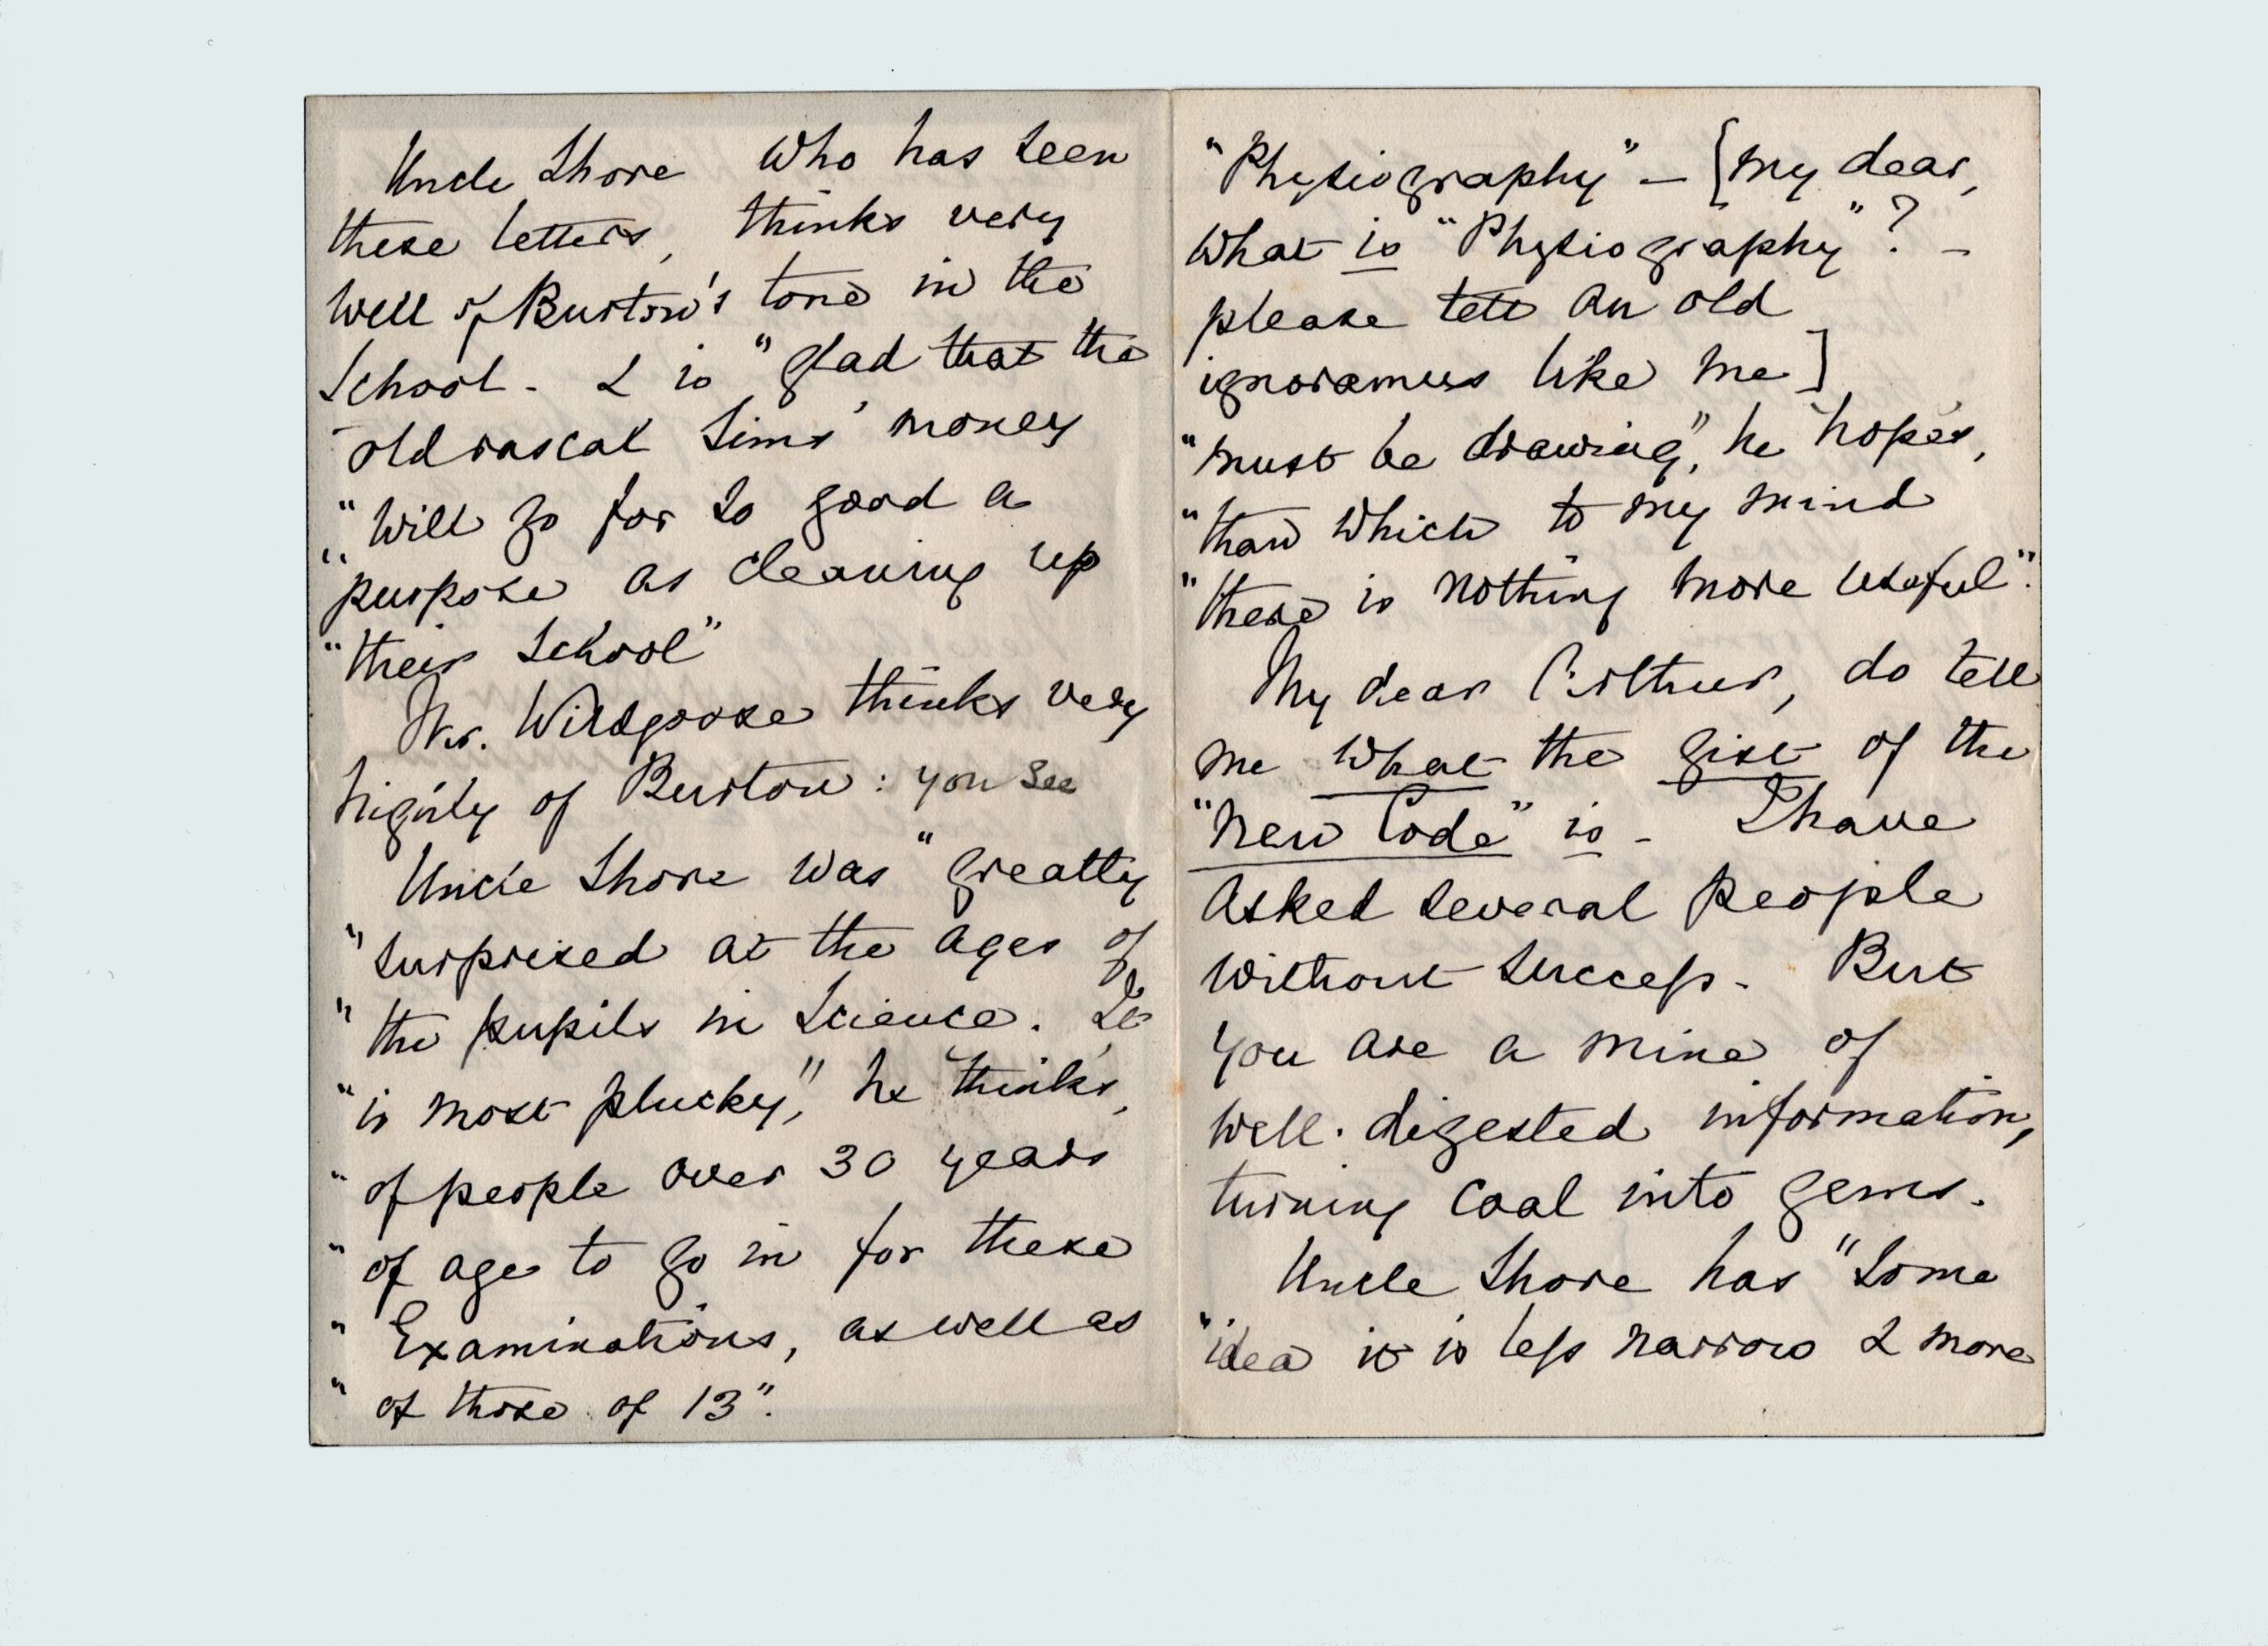 Uncle Shore who has seen
these letters, thinks very
well of Burton's tone in the
School - & is "glad that the
"old rascal Sims' money
"will go for so good a
"purpose as cleaning up
"their School"
Mr. Wildgoose thinks very
highly of Burton: you see
Uncle Shore was "greatly
"surprised at the ages of
"the pupils in Science. It
"is most plucky," he thinks,
"of people over 30 years
"of age to go in for these
"Examinations, as well as
"of those of 13".
"Physiography" - [my dear,
what is "Physiography"? -
please tell an old
ignoramus like me]
"must be drawing", he hopes,
"than which to my mind
"there is nothing more useful".
My dear Arthur, do tell
me what the gist of the
"New Code" is - I have
asked several people
without success - But
you are a mine of
well-digested information,
turning coal into gems.
Uncle Shore has "some
"idea it is less narrow & more